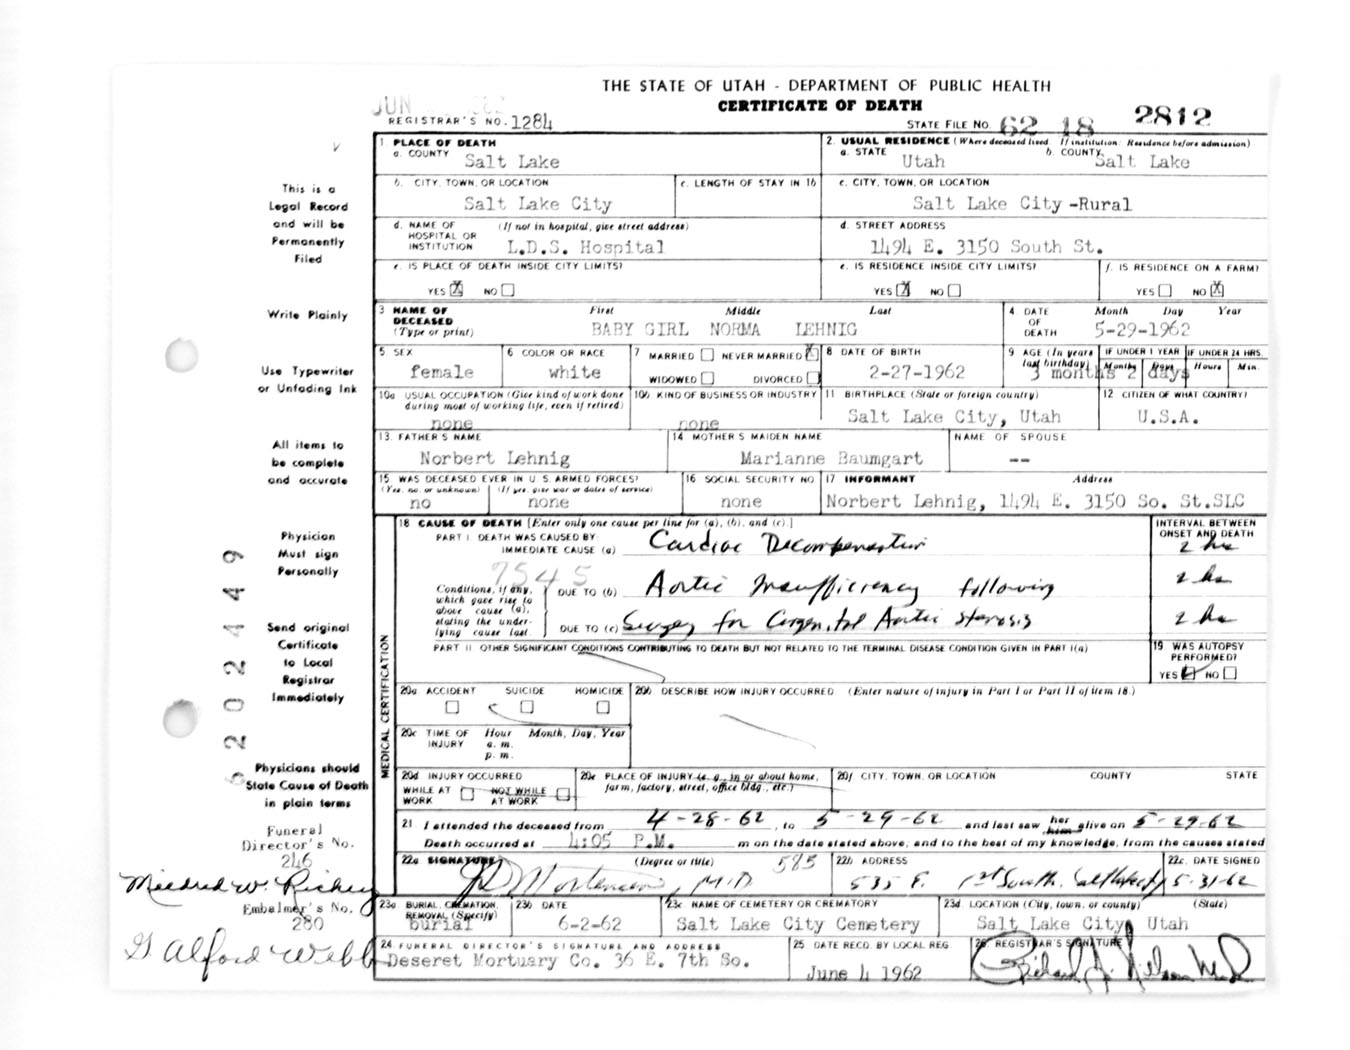 THE STATE OF UTAH - DEPARTMENT OF PUBLIC HEALTH
CERTIFICATE OF DEATH
JUN
REGISTRAR'S NO. 1284
STATE FILE NO. 62 18 2812
1. PLACE OF DEATH
a. COUNTY Salt Lake
2. USUAL RESIDENCE (Where deceased lived. If institution: Residence before admission)
a. STATE Utah b. COUNTY Salt Lake
b. CITY, TOWN, OR LOCATION Salt Lake City
c. LENGTH OF STAY IN 1b
c. CITY, TOWN, OR LOCATION Salt Lake City -Rural
d. NAME OF HOSPITAL OR INSTITUTION (If not in hospital, give street address) L.D.S. Hospital
d. STREET ADDRESS 1494 E. 3150 South St.
e. IS PLACE OF DEATH INSIDE CITY LIMITS?
YES X NO
e. IS RESIDENCE INSIDE CITY LIMITS?
YES X NO
f. IS RESIDENCE ON A FARM?
YES NO X
3 NAME OF DECEASED (Type or print) First Middle Last
BABY GIRL NORMA LEHNIG
4. DATE OF DEATH Month Day Year
5-29-1962
5. SEX female
6 COLOR OR RACE white
7 MARRIED NEVER MARRIED X
WIDOWED DIVORCED
8 DATE OF BIRTH 2-27-1962
9 AGE (In years last birthday) IF UNDER 1 YEAR Months Days IF UNDER 24 HRS. Hours Min.
3 months 2 days
10a USUAL OCCUPATION (Give kind of work done during most of working life, even if retired) none
10b KIND OF BUSINESS OR INDUSTRY none
11 BIRTHPLACE (State or foreign country) Salt Lake City, Utah
12 CITIZEN OF WHAT COUNTRY? U.S.A.
13. FATHER'S NAME Norbert Lehnig
14 MOTHER'S MAIDEN NAME Marianne Baumgart
NAME OF SPOUSE --
15 WAS DECEASED EVER IN U.S. ARMED FORCES?
(Yes, no, or unknown) (If yes, give war or dates of service)
no none
16 SOCIAL SECURITY NO none
17 INFORMANT Address
Norbert Lehnig, 1494 E. 3150 So. St.SLC
18 CAUSE OF DEATH [Enter only one cause per line for (a), (b), and (c).]
INTERVAL BETWEEN ONSET AND DEATH
PART I. DEATH WAS CAUSED BY:
IMMEDIATE CAUSE (a) Cardiac Decompensation 2 hrs
7545
Conditions, if any, which gave rise to above cause (a), stating the underlying cause last.
DUE TO (b) Aortic Insufficiency following 2 hrs
DUE TO (c) Surgery for Congenital Aortic Stenosis 2 hrs
PART II OTHER SIGNIFICANT CONDITIONS CONTRIBUTING TO DEATH BUT NOT RELATED TO THE TERMINAL DISEASE CONDITION GIVEN IN PART I(a)
19 WAS AUTOPSY PERFORMED?
YES NO
MEDICAL CERTIFICATION
20a ACCIDENT SUICIDE HOMICIDE
20b DESCRIBE HOW INJURY OCCURRED. (Enter nature of injury in Part I or Part II of item 18.)
20c TIME OF INJURY Hour Month, Day, Year
a. m.
p. m.
20d INJURY OCCURRED
WHILE AT WORK NOT WHILE AT WORK
20e PLACE OF INJURY (e. g., in or about home, farm, factory, street, office bldg., etc.)
20f CITY, TOWN, OR LOCATION COUNTY STATE
21 I attended the deceased from 4-28-62, to 5-29-62 and last saw her him alive on 5-29-62
Death occurred at 4:05 P.M. m on the date stated above, and to the best of my knowledge, from the causes stated
22a SIGNATURE (Degree or title) 585
JD Mortensen, M.D
22b ADDRESS 535 E. 1st South, Salt Lake City
22c. DATE SIGNED 5-31-62
23a BURIAL, CREMATION, REMOVAL (Specify) burial
23b DATE 6-2-62
23c NAME OF CEMETERY OR CREMATORY Salt Lake City Cemetery
23d LOCATION (City, town, or county) (State)
Salt Lake City, Utah
24 FUNERAL DIRECTOR'S SIGNATURE AND ADDRESS
Deseret Mortuary Co. 36 E. 7th So.
25 DATE RECD. BY LOCAL REG
June 4 1962
26 REGISTRAR'S SIGNATURE
This is a
Legal Record
and will be
Permanently
Filed
Write Plainly
Use Typewriter
or Unfading Ink
All items to
be complete
and accurate
Physician
Must sign
Personally
Send original
Certificate
to Local
Registrar
Immediately
Physicians should
State Cause of Death
in plain terms
Funeral
Director's No.
246
Mildred W. Richey
Embalmer's No.
280
G. Alford Webb